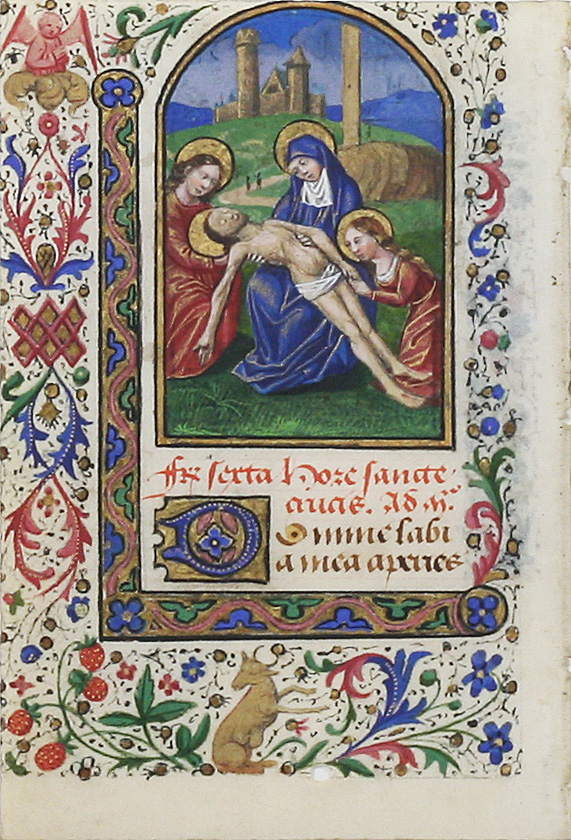 ffr sexta Hore sancte
crucis. Ad
Domine labi
a mea aperies